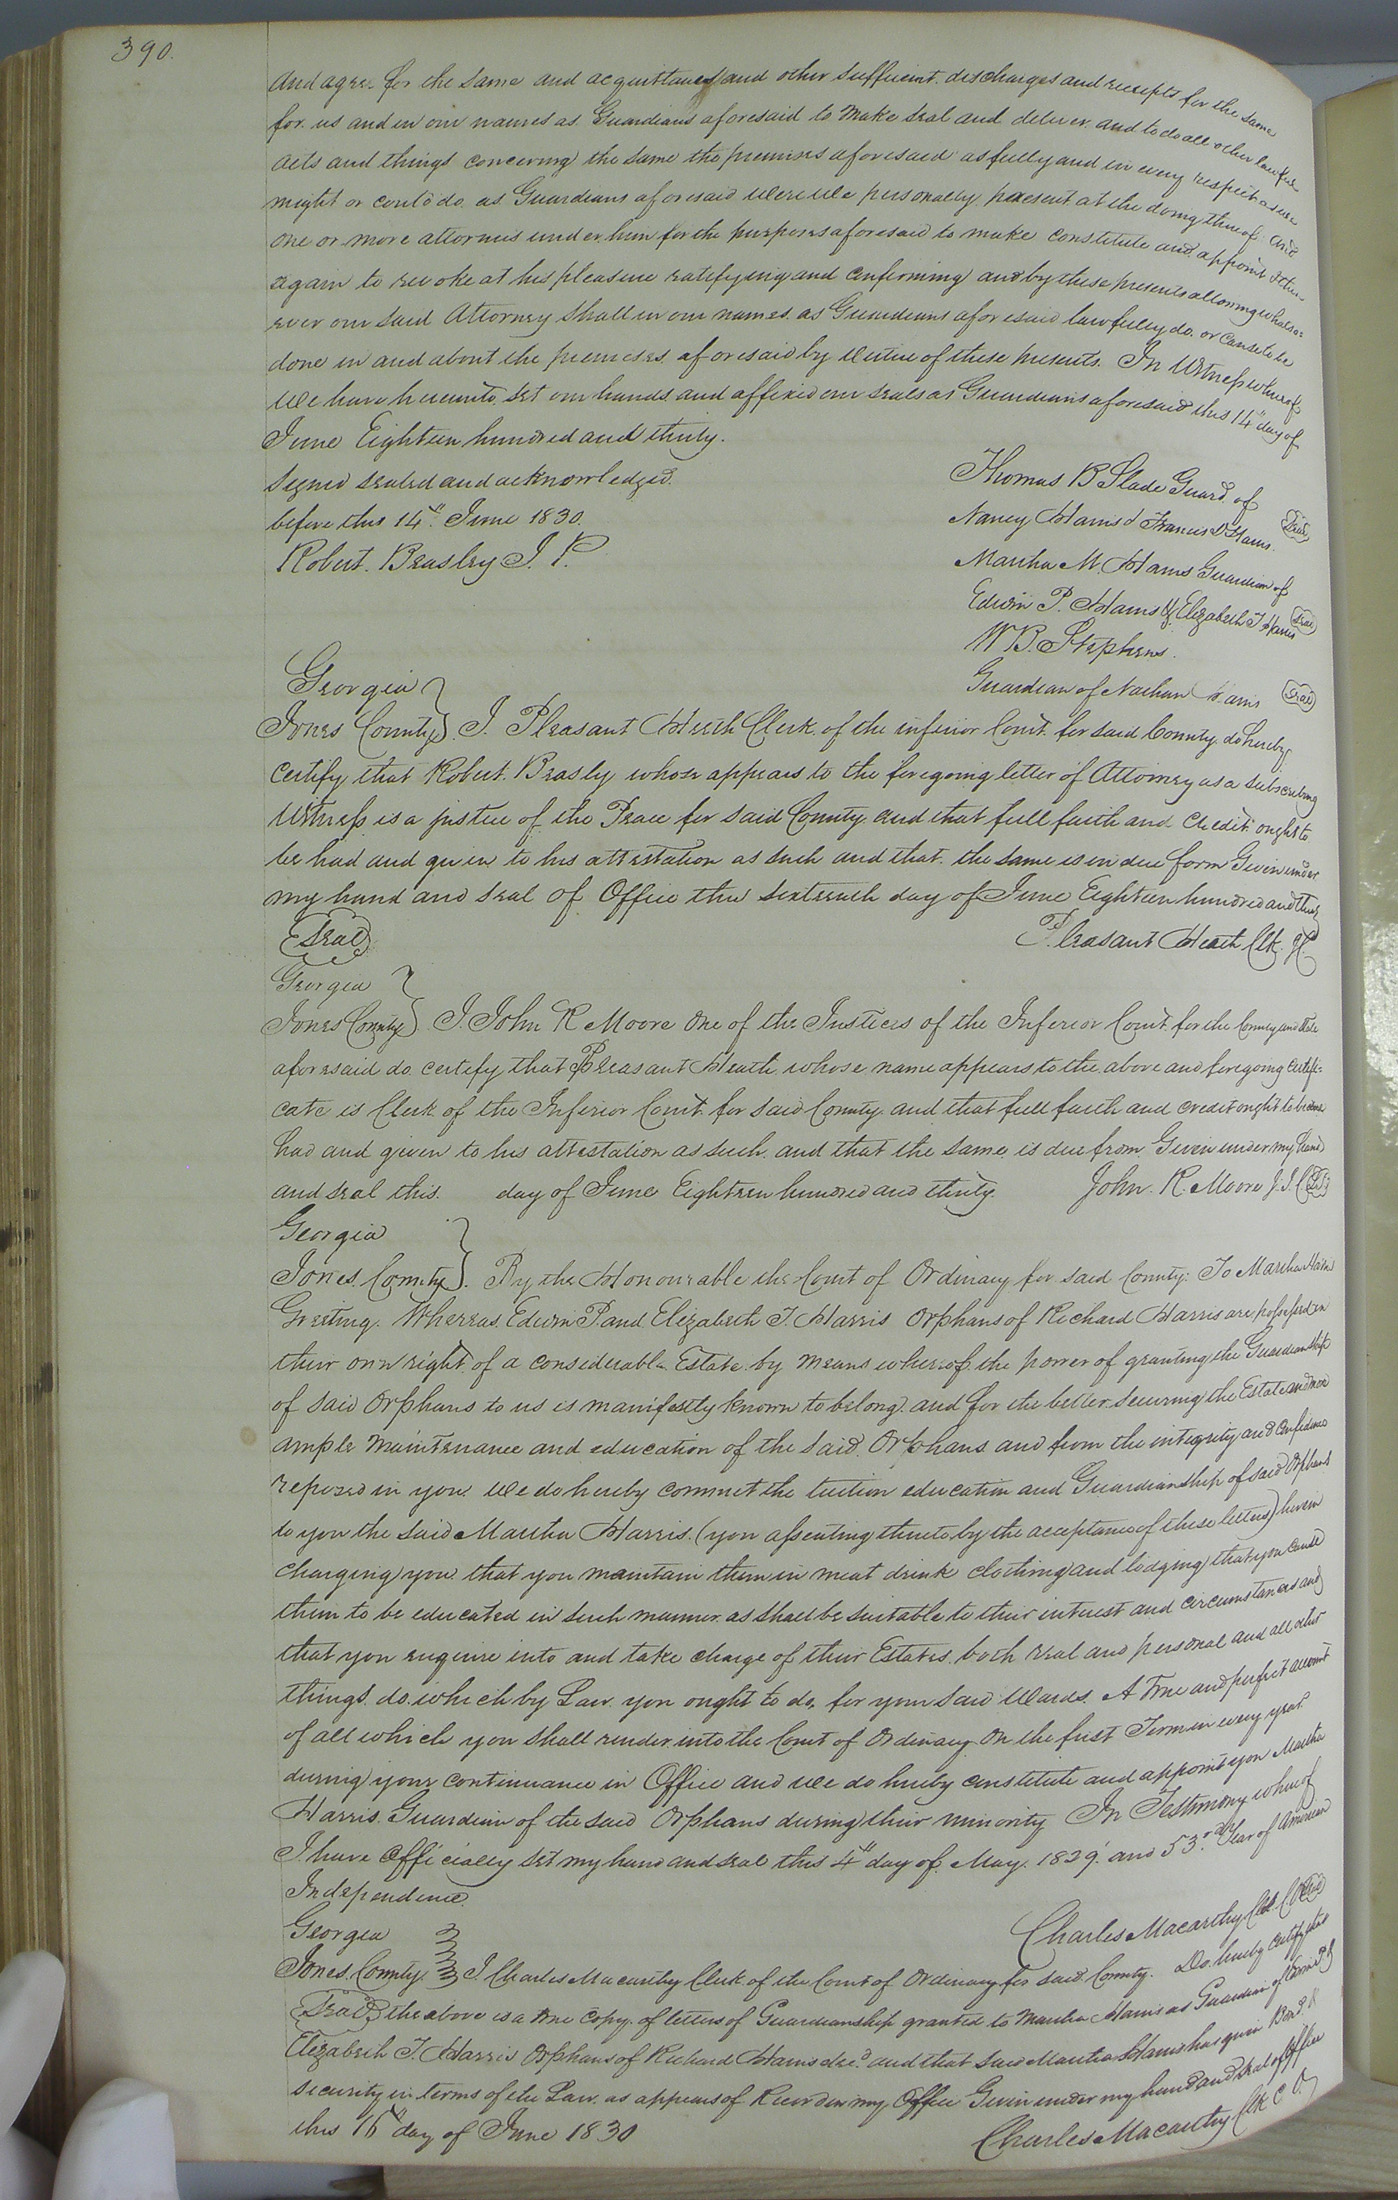 390.
And agree for the same and acquittances and other sufficient discharges and receipts for the same
for us and in our names as Guardians aforesaid to make seal and deliver and to do all other lawful
acts and things concerning the same the premises aforesaid as fully and in every respect as we
might or could do as Guardians aforesaid were we personally present at the doing thereof and
one or more attornies under him for the purposes aforesaid to make constitute and appoint &
again to revoke at his pleasure ratifying and confirming and by these presents allowing whatso=
ever our said Attorney shall in our names as Guardians aforesaid lawfully do or cause to be
done in and about the premises aforesaid by virtue of these presents. In Witness whereof
We have hereunto set our hands and affixed our seals as Guardians aforesaid this 14th day of
June Eighteen hundred and thirty.
Signed sealed and acknowledged
before this 14th June 1830.
Robert Beasley J. P.
Thomas B Slade Guard. of
Nancy Harris & Francis Harris (Seal)
Martha M. Harris Guardian of
Edwin P. Harris & Elizabeth T Harris (Seal)
W B. Stephens
Guardian of Nathan Harris (Seal)
Georgia }
Jones County } I. Pleasant Heath Clerk of the inferior Court for said County do hereby
certify that Robert Beasly whose appears to the foregoing letter of Attorney as a subscribing
Witness is a justice of the Peace for said County and that full faith and credit ought to
be had and given to his attestation as such and that the same is in due form Given under
my hand and seal of Office this sixteenth day of June Eighteen hundred and thirty
(Seal) Pleasant Heath Clk. I C
Georgia }
Jones County } I. John R Moore one of the Justices of the Inferior Court for the County and State
aforesaid do certify that Pleasant Heath whose name appears to the above and foregoing certifi=
cate is Clerk of the Inferior Court for said County and that full faith and credit ought to be
had and given to his attestation as such and that the same is due from Given under my hand
and seal this day of June Eighteen hundred and thirty. John R. Moore J. I. C (LS)
Georgia }
Jones County } By the Honourable the Court of Ordinary for said County: To Martha Harris
Greeting. Whereas Edwin P and Elizabeth T. Harris Orphans of Richard Harris are possessed in
their own right of a considerable Estate by means whereof the power of granting the Guardianship
of said Orphans to us is manifestly known to belong. and for the better securing the Estate and more
ample maintenance and education of the said Orphans and from the integrity and confidence
reposed in you we do hereby commit the tuition education and Guardianship of said Orphans
to you the said Martha Harris (you assenting thereto by the acceptance of these letters) herein
charging you that you maintain them in meat drink clothing and lodging that you cause
them to be educated in such manner as shall be suitable to their interest and circumstances and
that you enquire into and take charge of their Estates both real and personal and all other
things do which by Law you ought to do, for your said Wards. A true and perfect account
of all which you shall render into the Court of Ordinary on the first Term in every year
during your continuance in Office and we do hereby constitute and appoint you Martha
Harris Guardian of the said Orphans during their minority In Testimony whereof
I have Officially set my hand and seal this 4th day of May. 1829. and 53rd Year of American
Independence.
Charles Macarthy Clk. C
Georgia }
Jones County } I Charles Macarthy Clerk of the Court of Ordinary for said County. Do hereby certify that
(Seal) the above is a true copy of letters of Guardianship granted to Martha Harris as Guardian of Edwin P &
Elizabeth T. Harris Orphans of Richard Harris decd and that said Martha Harris has given Bond &
security in terms of the Law as appears of Record in my Office Given under my hand and seal of Office
this 16th day of June 1830
Charles Macarthy Clk C. O.